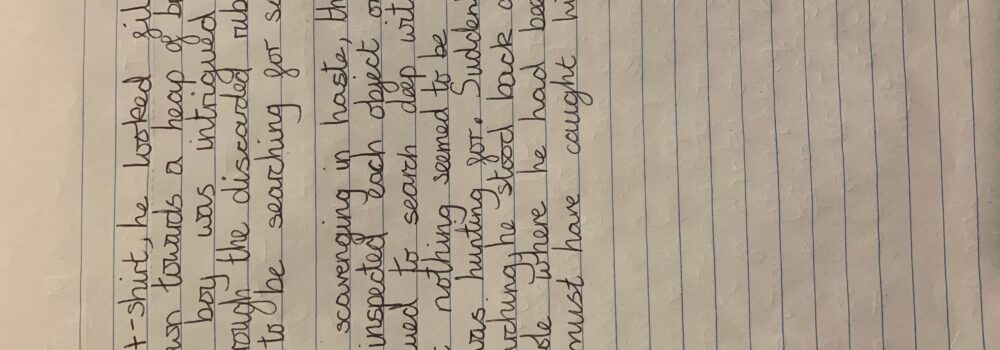 t-shirt, he looked
towards a heap of
boy was intrigued
the discarded
to be searching for
scavenging in haste,
inspected each object
to search deep
nothing seemed to be
was hunting for. Sudden
he stood back
where he had bee
must have caught hi